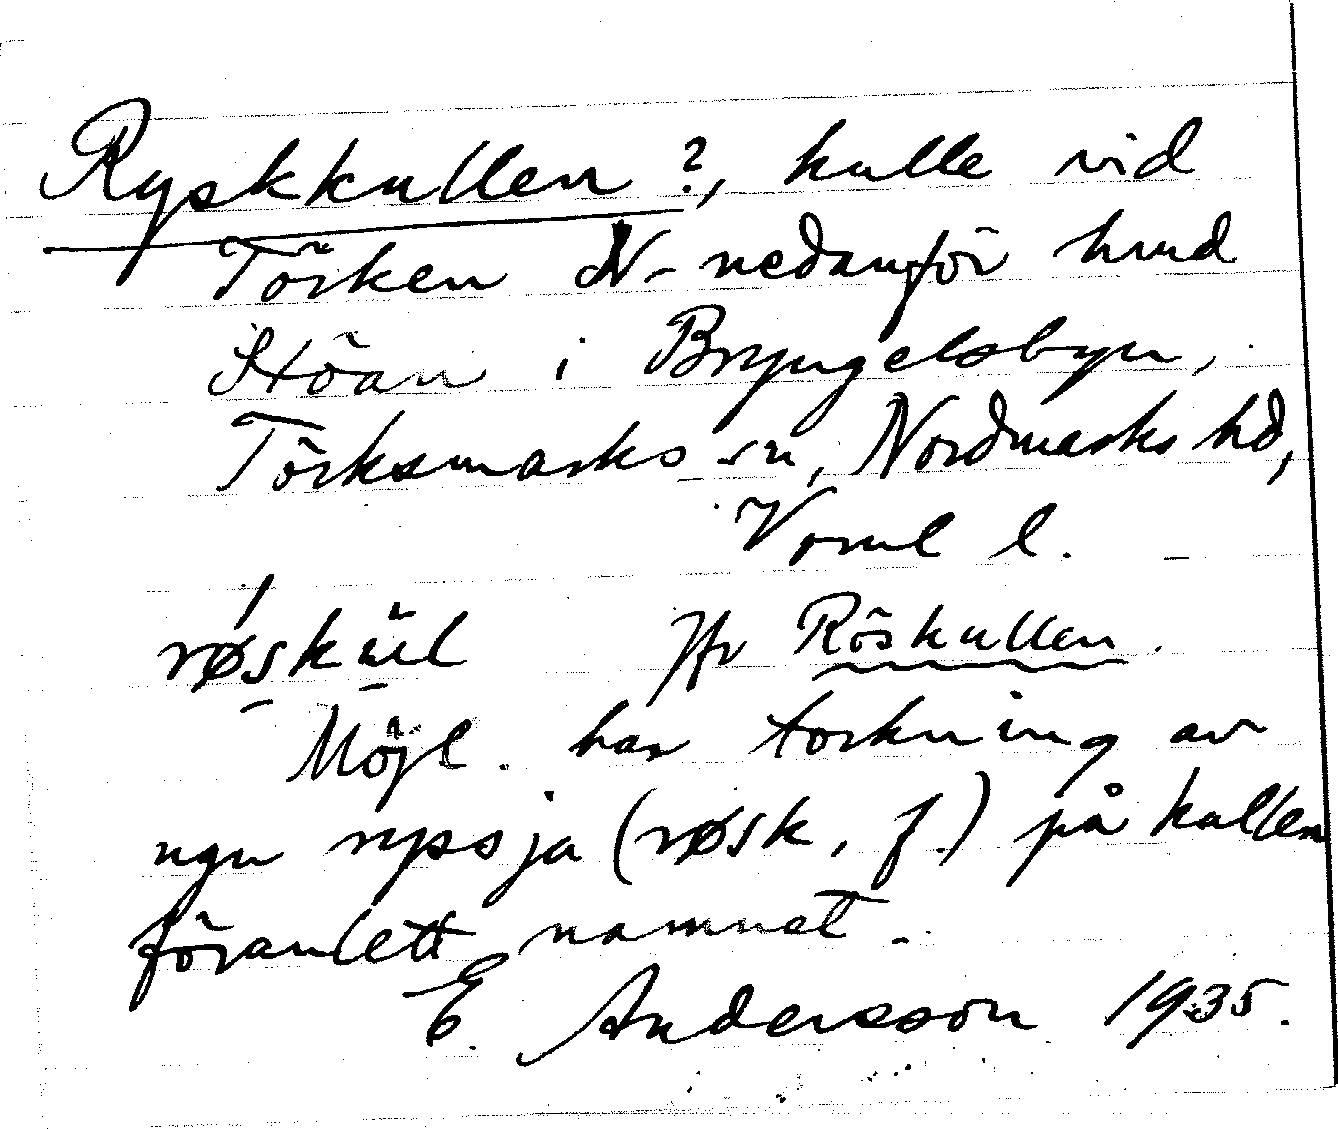 Ryskkullen?, kulle vid
Törken N. nedanför hmd
Stöan i Bryngelsbyn,
Törksmarks sn, Nordmarks hd,
Vrml l.
røskúl Jfr Röskullen.
Möjl. har torkning av
ngn ryssja (røsk, f.) på kullen
föranlett namnet.
E. Andersson 1935.